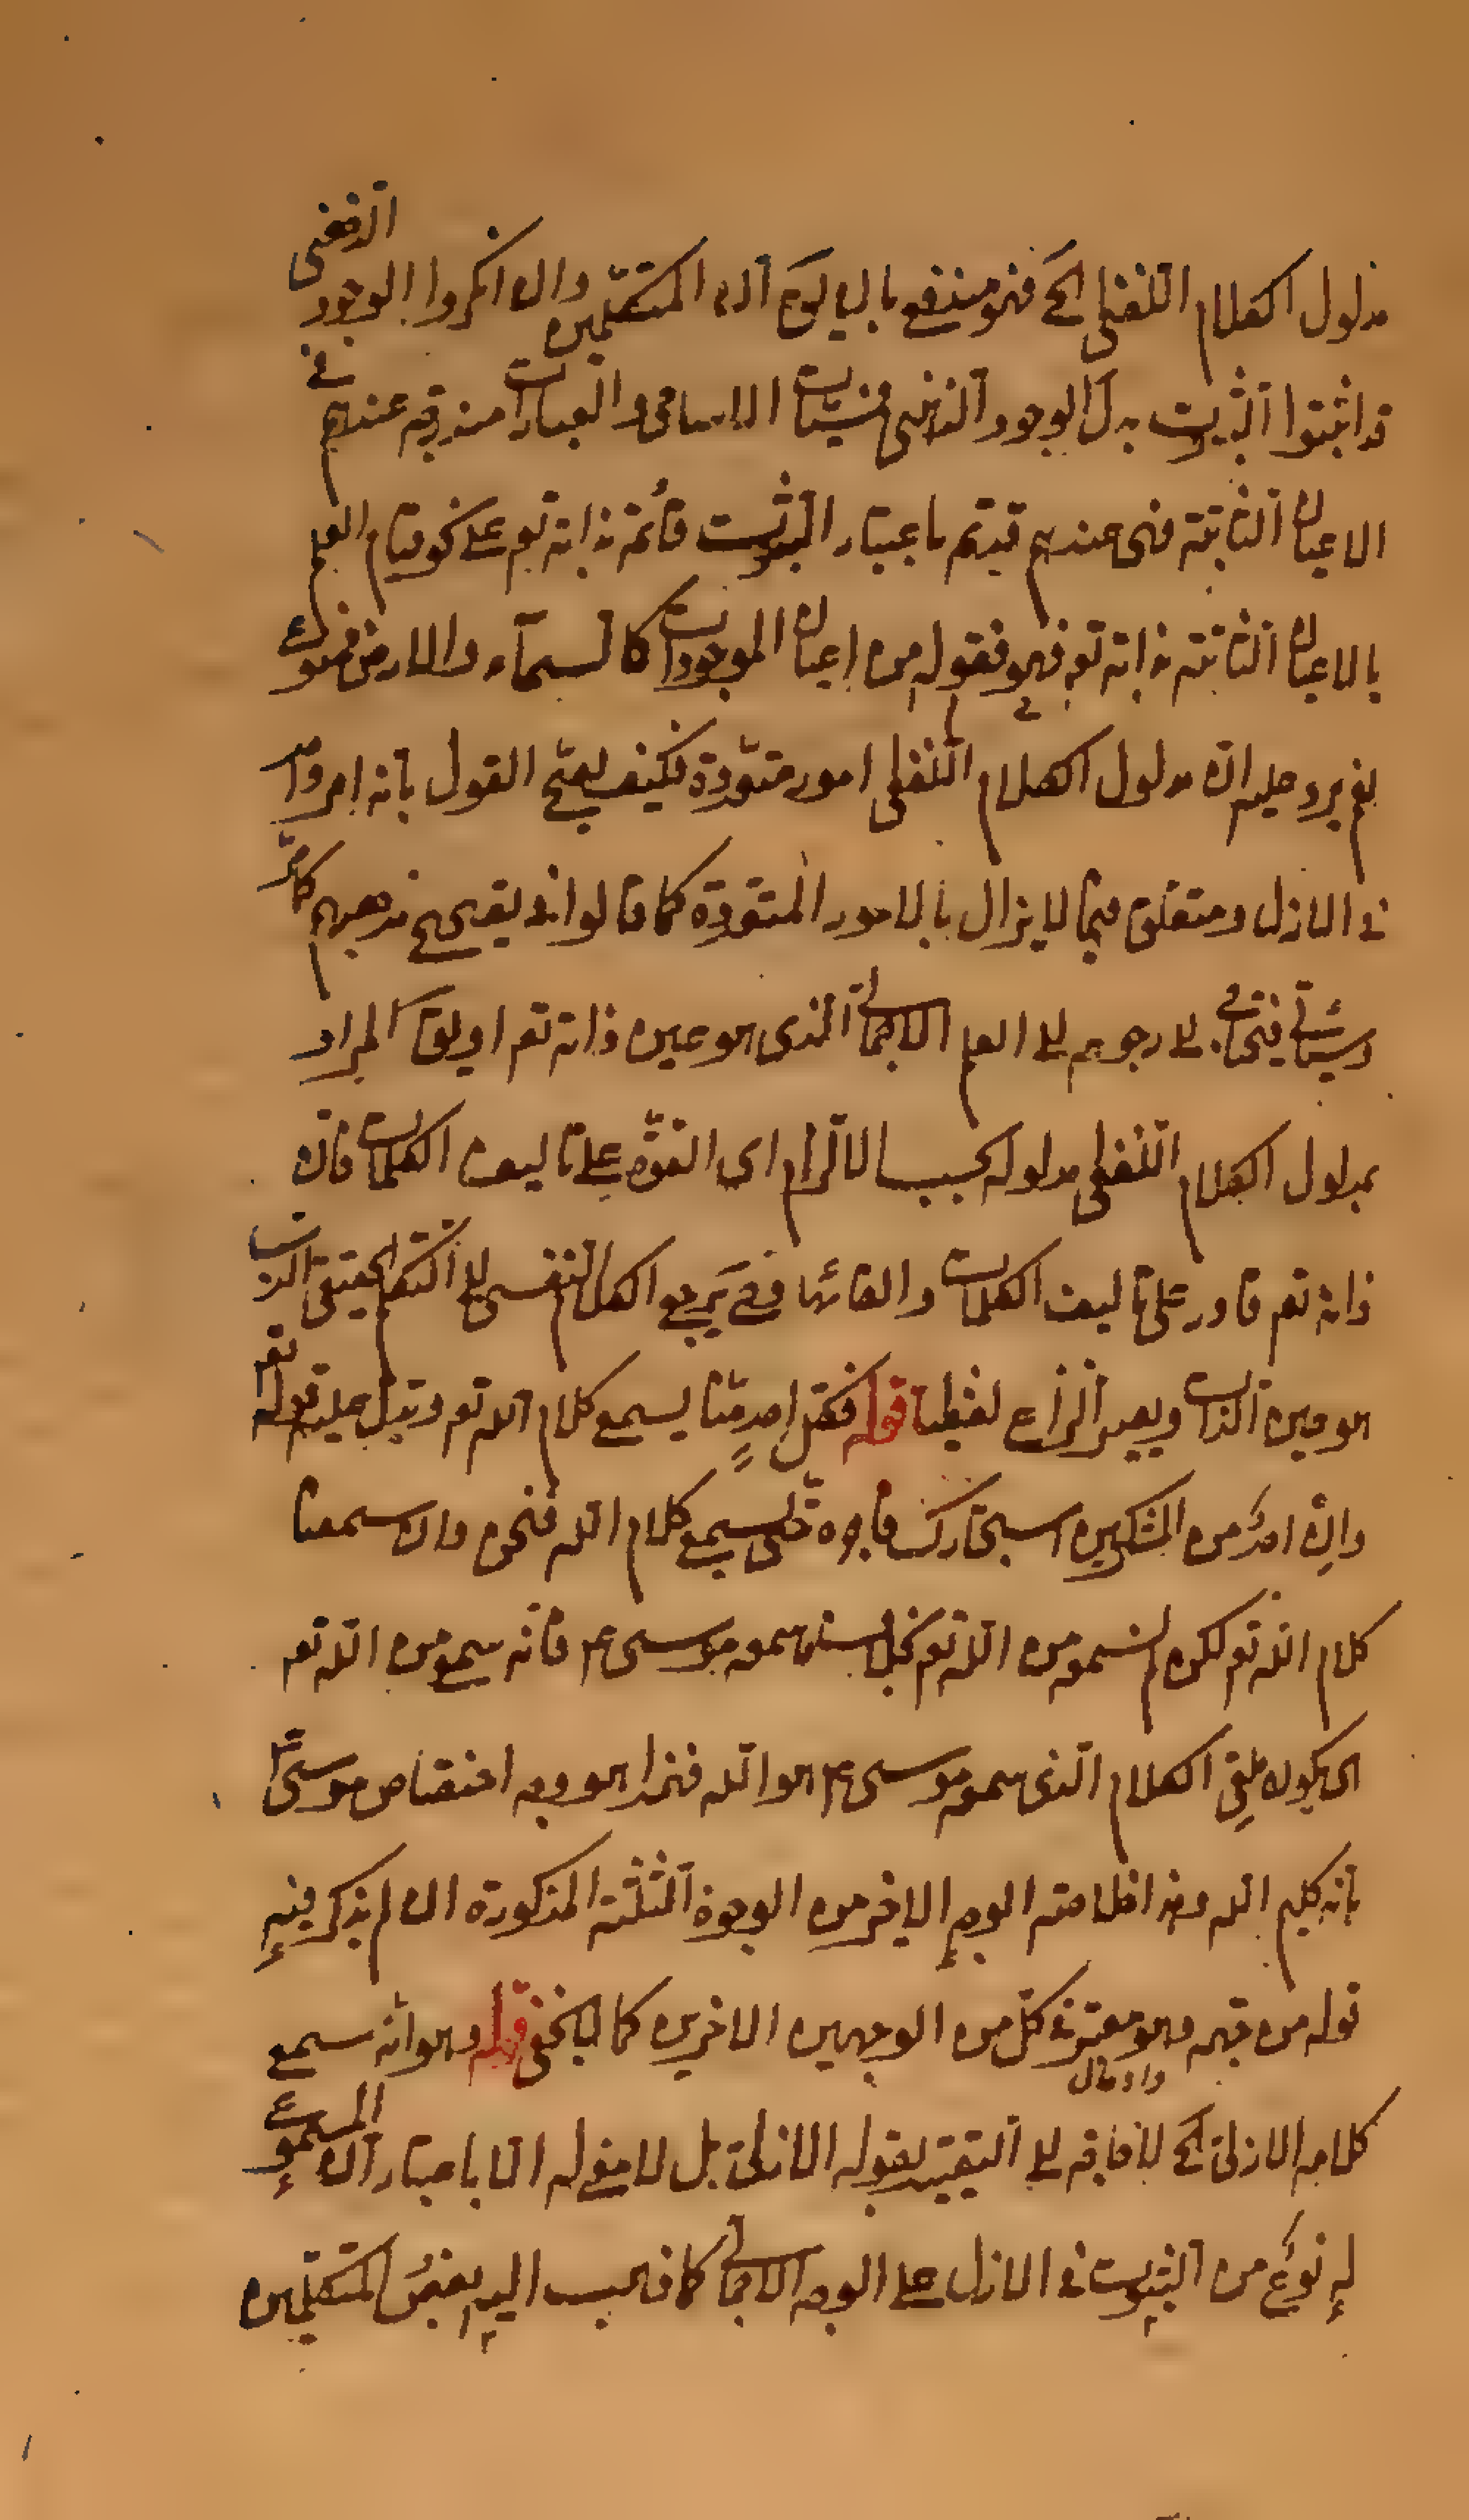 مدلول الكلام اللفظي الخ فهو مندفع بان يؤل آراء المتكلمين وان انكروا الوجود الذهني
قد اثبتوا الثبوت بدل الوجود الذهني فمسميات الاسامي والعبارات مندرجة عندهم في
الاعيان الثابتة فهي عندهم قديم باعتبار الثبوت قائمة بذاته تع على نحو قيام العلم
بالاعيان الثابتة بذاته تع فهو فقوله من اعيان الموجودات كالسمآء والارض فممنوع
نعم يرد عليه ان مدلول الكلام اللفظي امور متعددة فكيف يصح القول بانه امر واحد
في الازل ومتعلق فيما لا يزال بالامور المتعددة كما قالوا في مذهبهم كما مر
وسيأتي فيحتاج الى رجوعه الى العلم الاجمالي الذي هو عين ذاته تع او يقال المراد
بمدلول الكلام اللفظي مدلوله بحسب الالتزام اى القوة على تاليف الكلمات فان
ذاته تع قادر على تاليف الكلمات والقائها فح يرجع الكلام النفسي الى التكلم الحقيقي الذي
هو عين الذات ويصير النزاع لفظيا قوله فكل احد منا يسمع كلام الله تع ويدل عليه قوله تع
وان احد من المشركين استجارك فاجره حتى يسمع كلام الله فنحن وان سمعنا
كلام الله تع لكن لم نسمعه من الله تع بخلاف ما سمعه موسى ع م فانه سمع من الله تع
اى يكون ملقي الكلام الذي سمعه موسى ع م هو الله فهذا هو وجه اختصاص موسى ع م
بانه كليم الله وهذا خلاصة الوجه الاخر من الوجوه الثلثة المذكورة ان لم يذكر فيه
قوله من جهة وهو معتبر في كل من الوجهين الاخرين كما لا يخفى قوله وهو انه سمع
كلامه الازلي الخ لا حاجة الى التقييد بقوله الازلي بل لا معنى له الا باعتبار ان المسموع
له نوع من الثبوت في الازل على الوجه الاجمالي كما ذهب اليه بعض المتكلمين